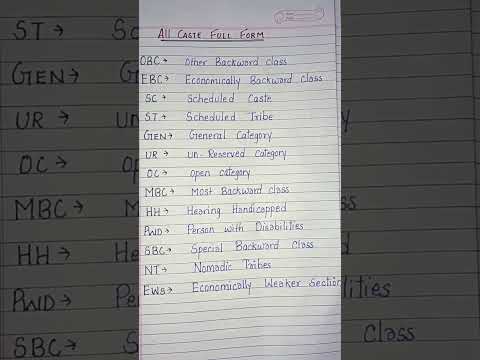 All Caste Full Form
OBC → Other Backward class
EBC → Economically Backward Class
SC → Scheduled Caste
ST → Scheduled Tribe
GEN → General Category
UR → un-Reserved category
OC → open category
MBC → Most Backward class
HH → Hearing Handicapped
PWD → Person with Disabilities
SBC → Special Backward Class
NT → Nomadic Tribes
EWS → Economically Weaker Section